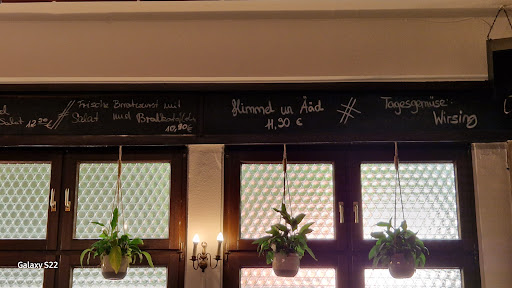 Salat 12,50 €
#
Frische Bratwurst mit
Salat und Bratkartoffeln
10,90 €
Himmel un Ääd
11,90 €
#
Tagesgemüse:
Wirsing
Galaxy S22